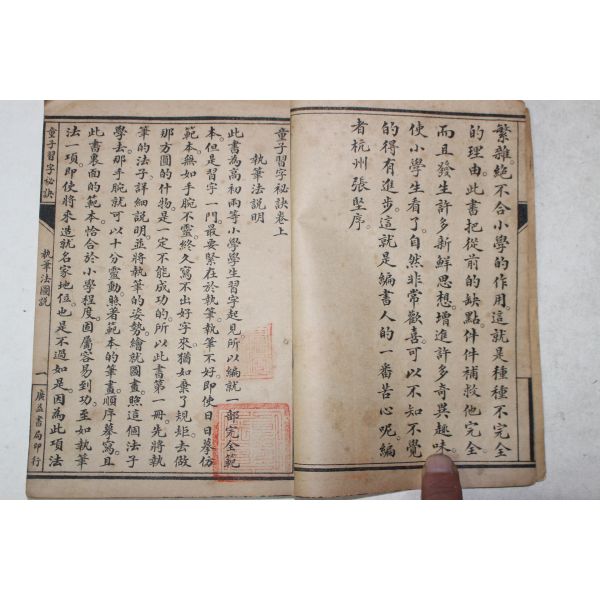 繁雜。絕不合小學的作用。這就是種種不完全
的理由。此書把從前的缺點。件件補救他完全。
而且發生許多新鮮思想。增進許多奇異趣味。
使小學生看了。自然非常歡喜。可以不知不覺
的得有進步。這就是編書人的一番苦心呢。編
者杭州張堅序。
童子習字秘訣卷上
執筆法說明
此書為高初兩等小學學生習字起見。所以編就一部完全範
本。但是習字一門。最要緊在於執筆。執筆不好。即使日日摹仿
範本。無如手腕不靈。終久寫不出好字來。猶如棄了規矩。去做
那方圓的什物。是一定不能成功的。所以此書第一冊。先將執
筆的法子。詳細說明。並將執筆的姿勢。繪就圖畫。照這個法子
學去。那手腕就可以十分靈動。照著範本的筆畫順序摹寫。且
此書裏面的範本。恰合於小學程度。固屬容易到功。並如執筆
法一項。即使將來造就名家地位。也是不過如是。因為此項法
童子習字秘訣
執筆法圖說
一
廣益書局印行